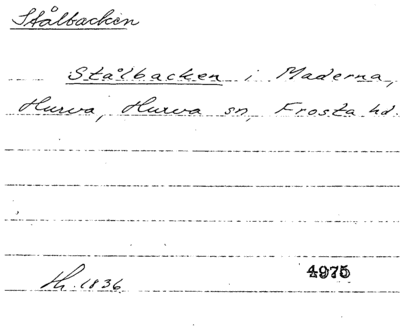 Stålbacken
Stålbacken i Maderna,
Hurva, Hurva sn, Frosta hd.
Th. 1836 4975